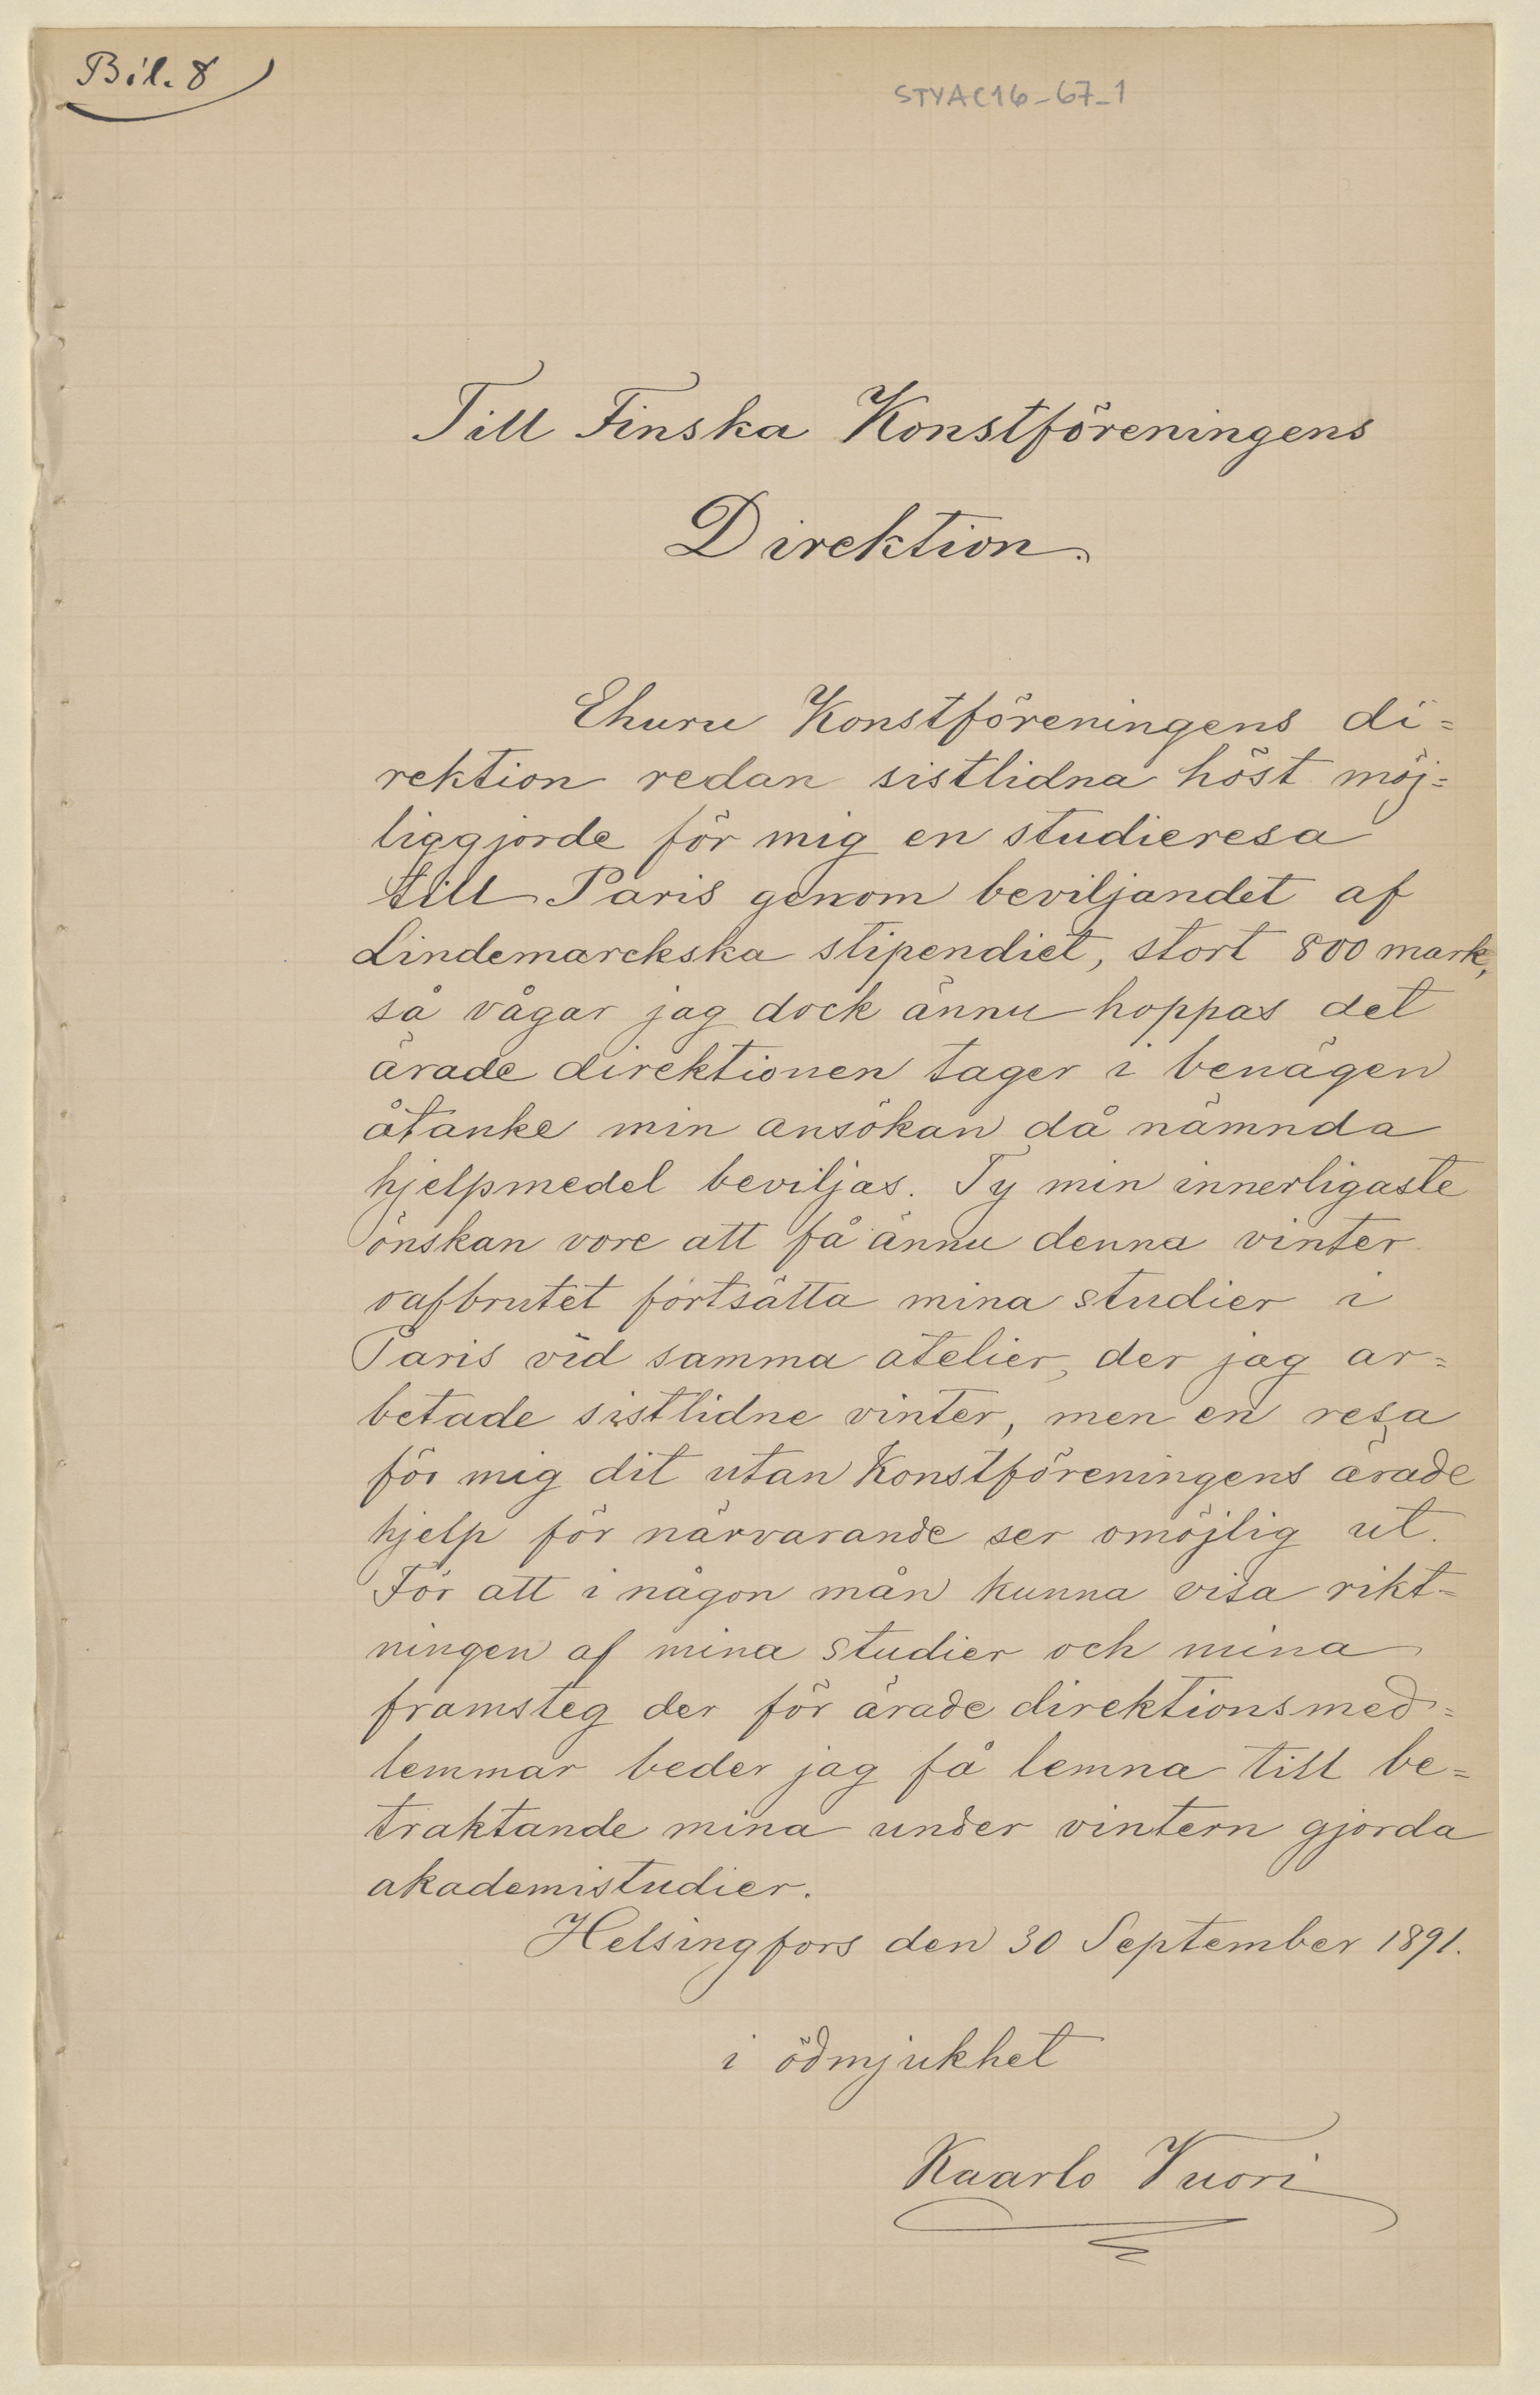 Bil. 8
STYAC16-67-1
Till Finska Konstföreningens
Direktion.
Ehuru Konstföreningens di=
rektion redan sistlidna höst möj=
liggjorde för mig en studieresa
till Paris genom beviljandet af
Lindemarckska stipendiet, stort 800 mark,
så vågar jag dock ännu hoppas det
ärade direktionen tager i benägen
åtanke min ansökan då nämnda
hjelpmedel beviljas. Ty min innerligaste
önskan vore att få ännu denna vinter
oafbrutet fortsätta mina studier i
Paris vid samma atelier, der jag ar=
betade sistlidne vinter, men en resa
för mig dit utan Konstföreningens ärade
hjelp för närvarande ser omöjlig ut.
För att i någon mån kunna visa rikt=
ningen af mina studier och mina
framsteg der för ärade direktionsmed=
lemmar beder jag få lemna till be=
traktande mina under vintern gjorda
akademistudier.
Helsingfors den 30 September 1891.
i ödmjukhet
Kaarlo Vuori